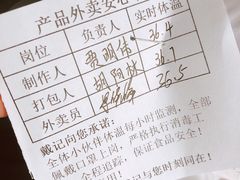 产品外卖安心
岗位 负责人 实时体温
制作人 36.4
打包人 胡阿林 36.7
外卖员 36.5
戴记向您承诺:
全体小伙伴体温每小时监测,全部
佩戴口罩上岗,严格执行消毒工
全程追踪,保证食品安全!
记与您时刻同在!